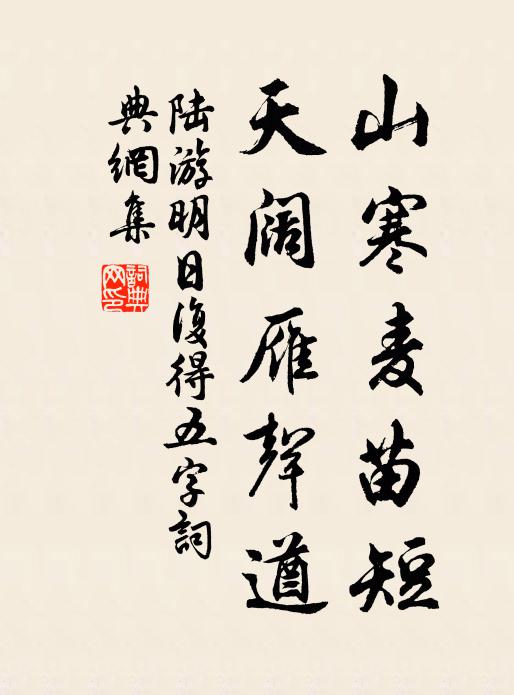 山寒麦苗短
天阔雁聲遒
陆游明日復得五字詞
典網集
詞典网印